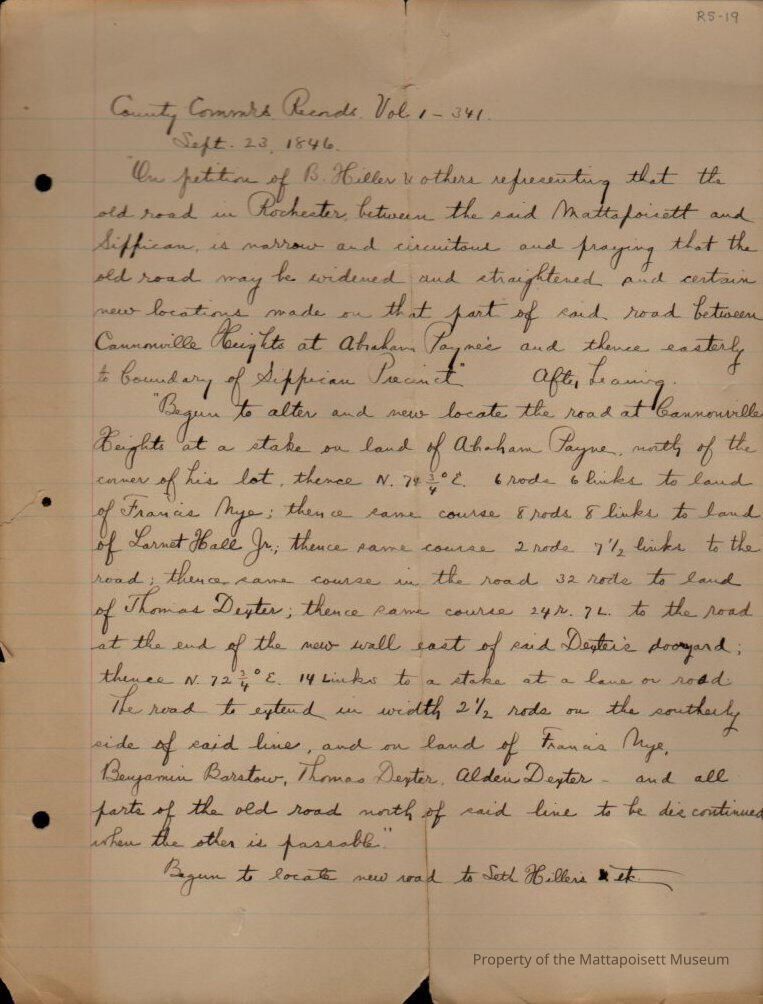 RS-19
County Commrs Records. Vol 1 - 341.
Sept. 23, 1846.
"On petition of B. Hiller & others representing that the
old road in Rochester, between the said Mattapoisett and
Sippican, is narrow and circuitous and praying that the
old road may be widened and straightened and certain
new locations made on that part of said road between
Cannonville Heights at Abraham Payne's and thence easterly
to boundary of Sippican Precinct" After hearing.
"Begun to alter and new locate the road at Cannonville
Heights at a stake on land of Abraham Payne, north of the
corner of his lot, thence N. 74 3/4° E. 6 rods 6 links to land
of Francis Nye; thence same course 8 rods 8 links to land
of Hall Jr.; thence same course 2 rods 7 1/2 links to the
road; thence same course in the road 32 rods to land
of Thomas Dexter; thence same course 24 R. 7 L. to the road
at the end of the new wall east of said Dexter's dooryard;
thence N. 72 3/4° E. 14 Links to a stake at a lane or road.
The road to extend in width 2 1/2 rods on the southerly
side of said line, and on land of Francis Nye,
Benjamin Barstow, Thomas Dexter, Alden Dexter - and all
parts of the old road north of said line to be discontinued
when the other is passable."
Begun to locate new road to Seth Hillers & etc.
Property of the Mattapoisett Museum